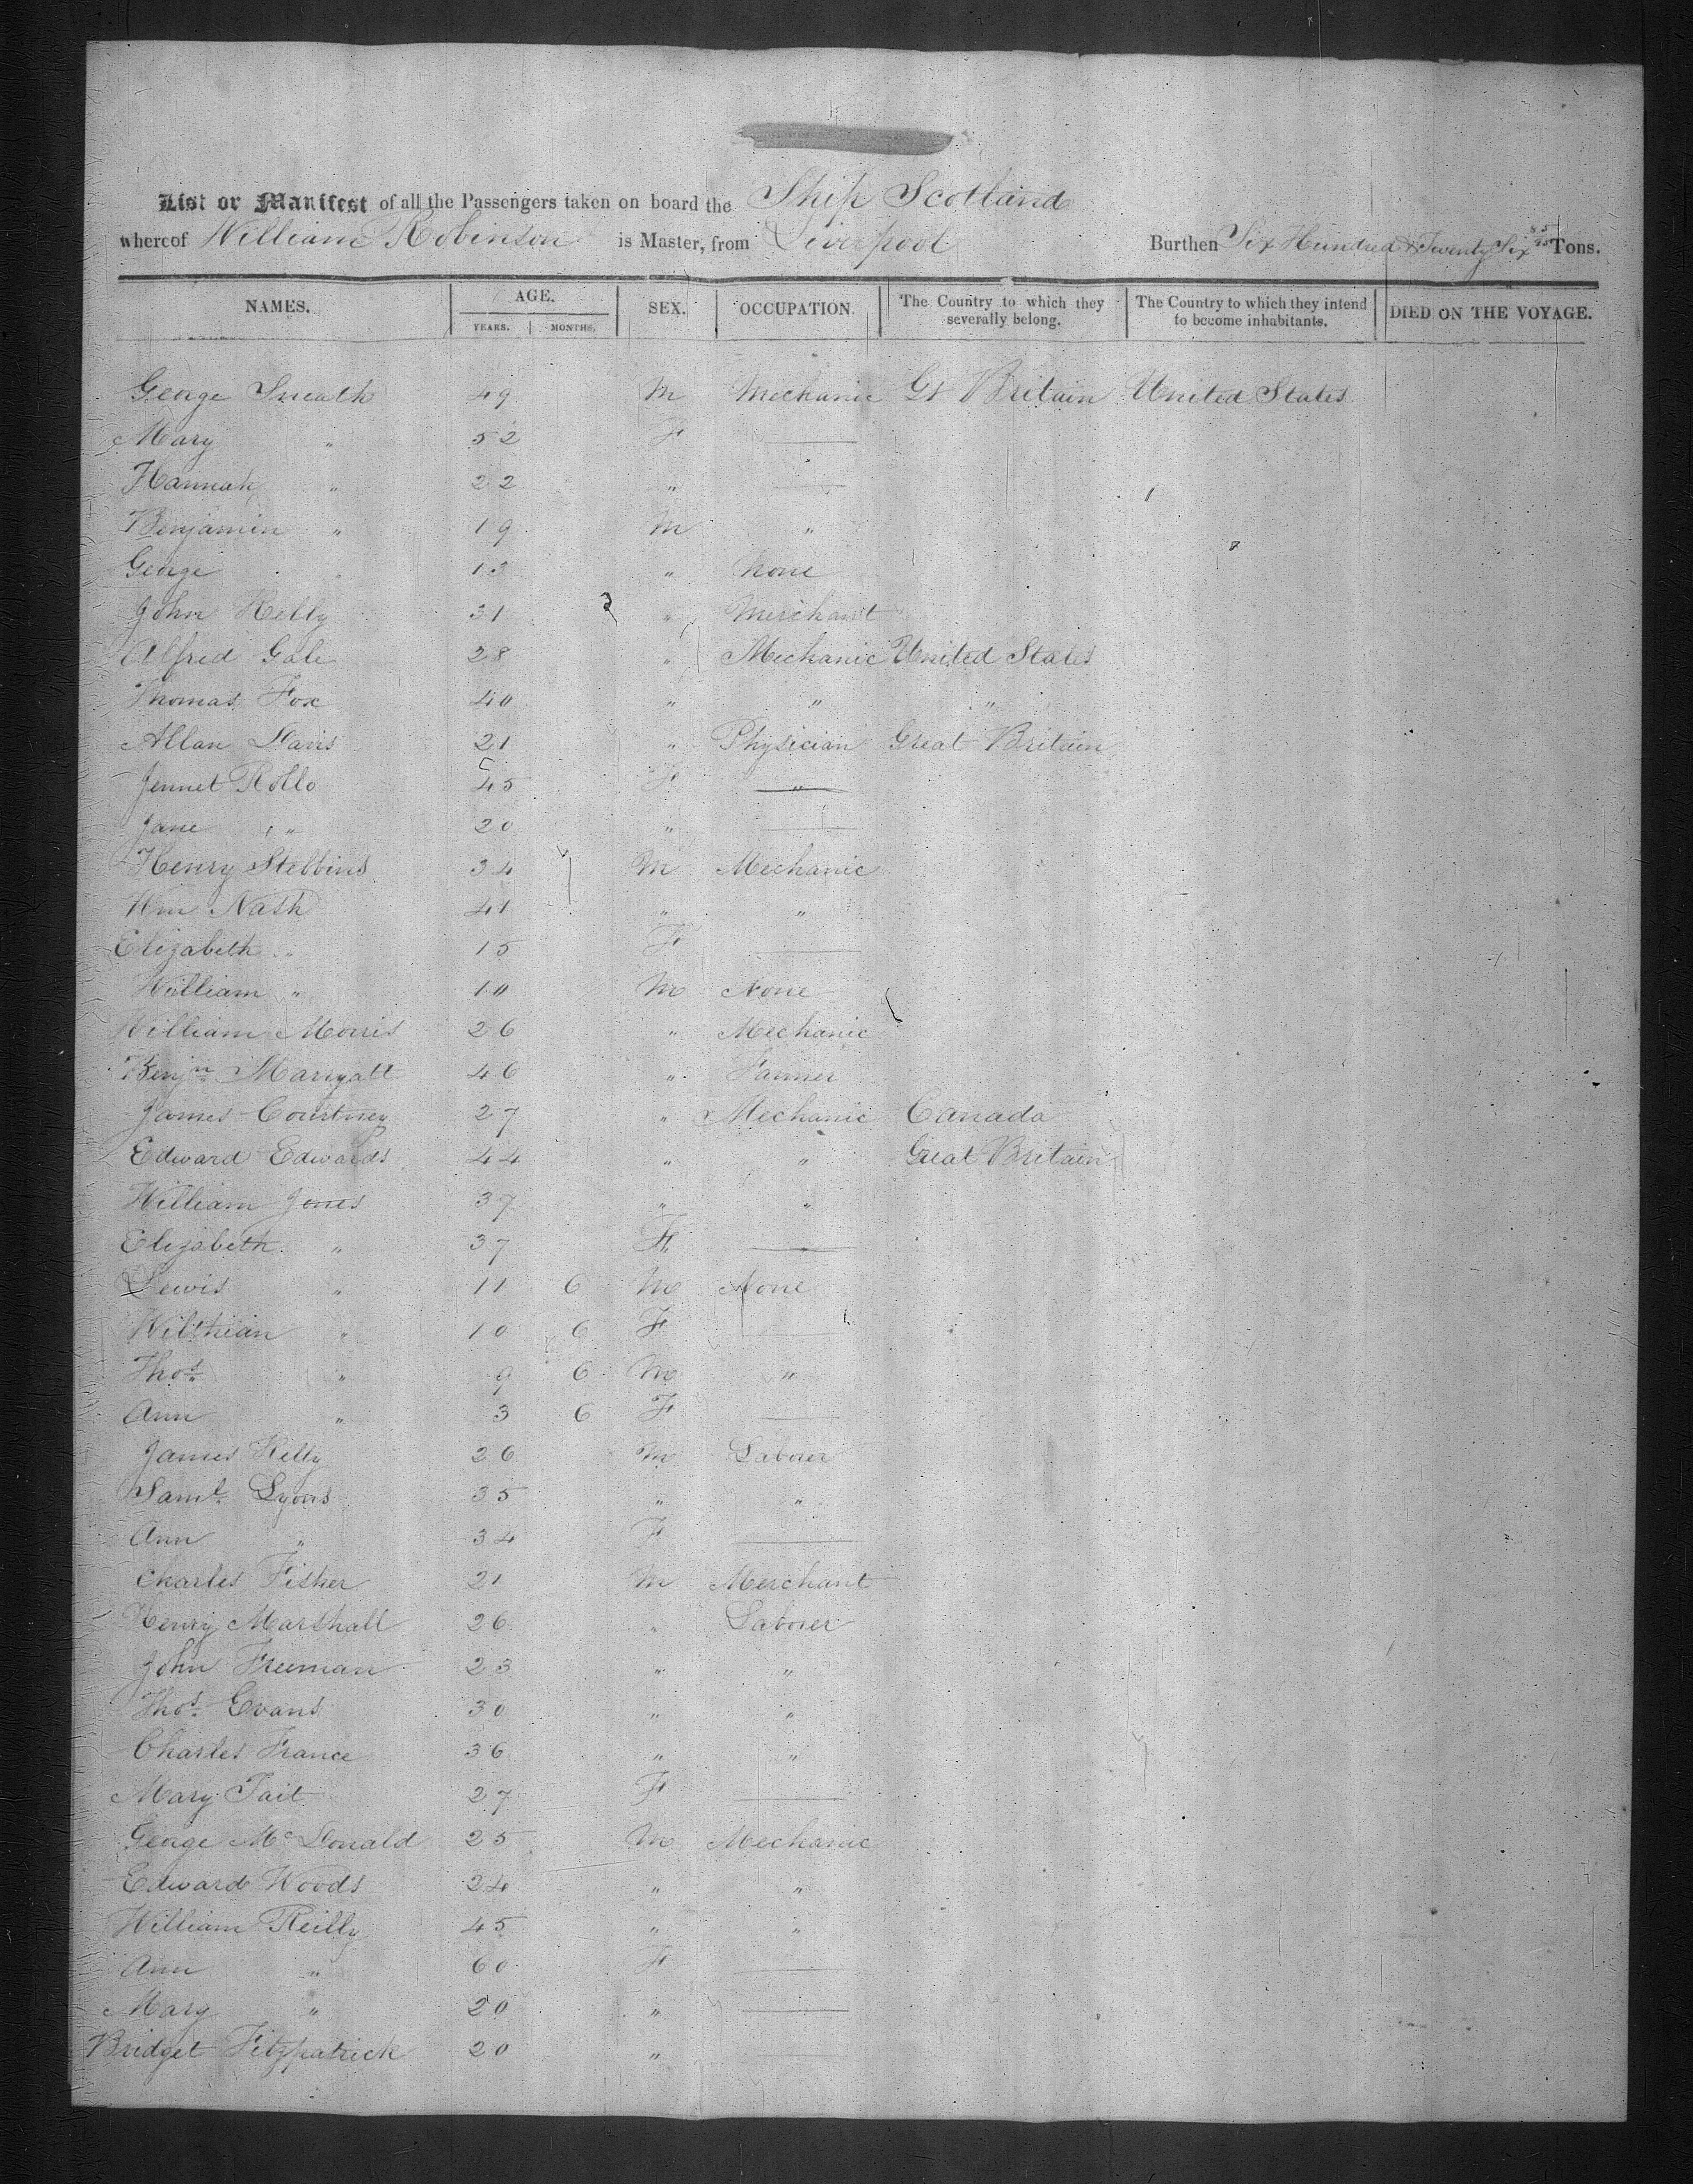 List or Manifest of all the Passengers taken on board the Ship Scotland
whereof William Robinson is Master, from Liverpool Burthen Six Hundred & Twenty Six 85/95 Tons.
NAMES. AGE. SEX. OCCUPATION. The Country to which they severally belong. The Country to which they intend to become inhabitants. DIED ON THE VOYAGE.
YEARS. MONTHS.
George Sneath 49 M Mechanic Gt Britain United States
Mary " 52 F —
Hannah " 22 " —
Benjamin " 19 M "
George " 13 " None
John Kelly 31 " Merchant
Alfred Gale 28 " Mechanic United States
Thomas Fox 40 " " "
Allan Davis 21 " Physician Great Britain
Jennet Rollo 45 F "
Jane " 20 " —
Henry Stebbins 34 M Mechanic
Wm Nash 41 " "
Elizabeth " 15 F —
William " 10 M None
William Morris 26 " Mechanic
Benjn Marryatt 46 " Farmer
James Courtney 27 " Mechanic Canada
Edward Edwards 44 " " Great Britain
William Jones 37 " "
Elizabeth " 37 F —
Lewis " 11 6 M None
" 10 6 F —
Thos " 9 6 M "
Ann " 3 6 F —
James Kelly 26 M Laborer
Saml Lyons 35 " "
Ann " 34 F —
Charles Fisher 21 M Merchant
Henry Marshall 26 " Laborer
John Freeman 23 " "
Thos Evans 30 " "
Charles France 36 " "
Mary Tait 27 F —
George McDonald 25 M Mechanic
Edward Woods 24 " "
William Reilly 45 " "
Ann " 60 F —
Mary " 20 " —
Bridget Fitzpatrick 20 "